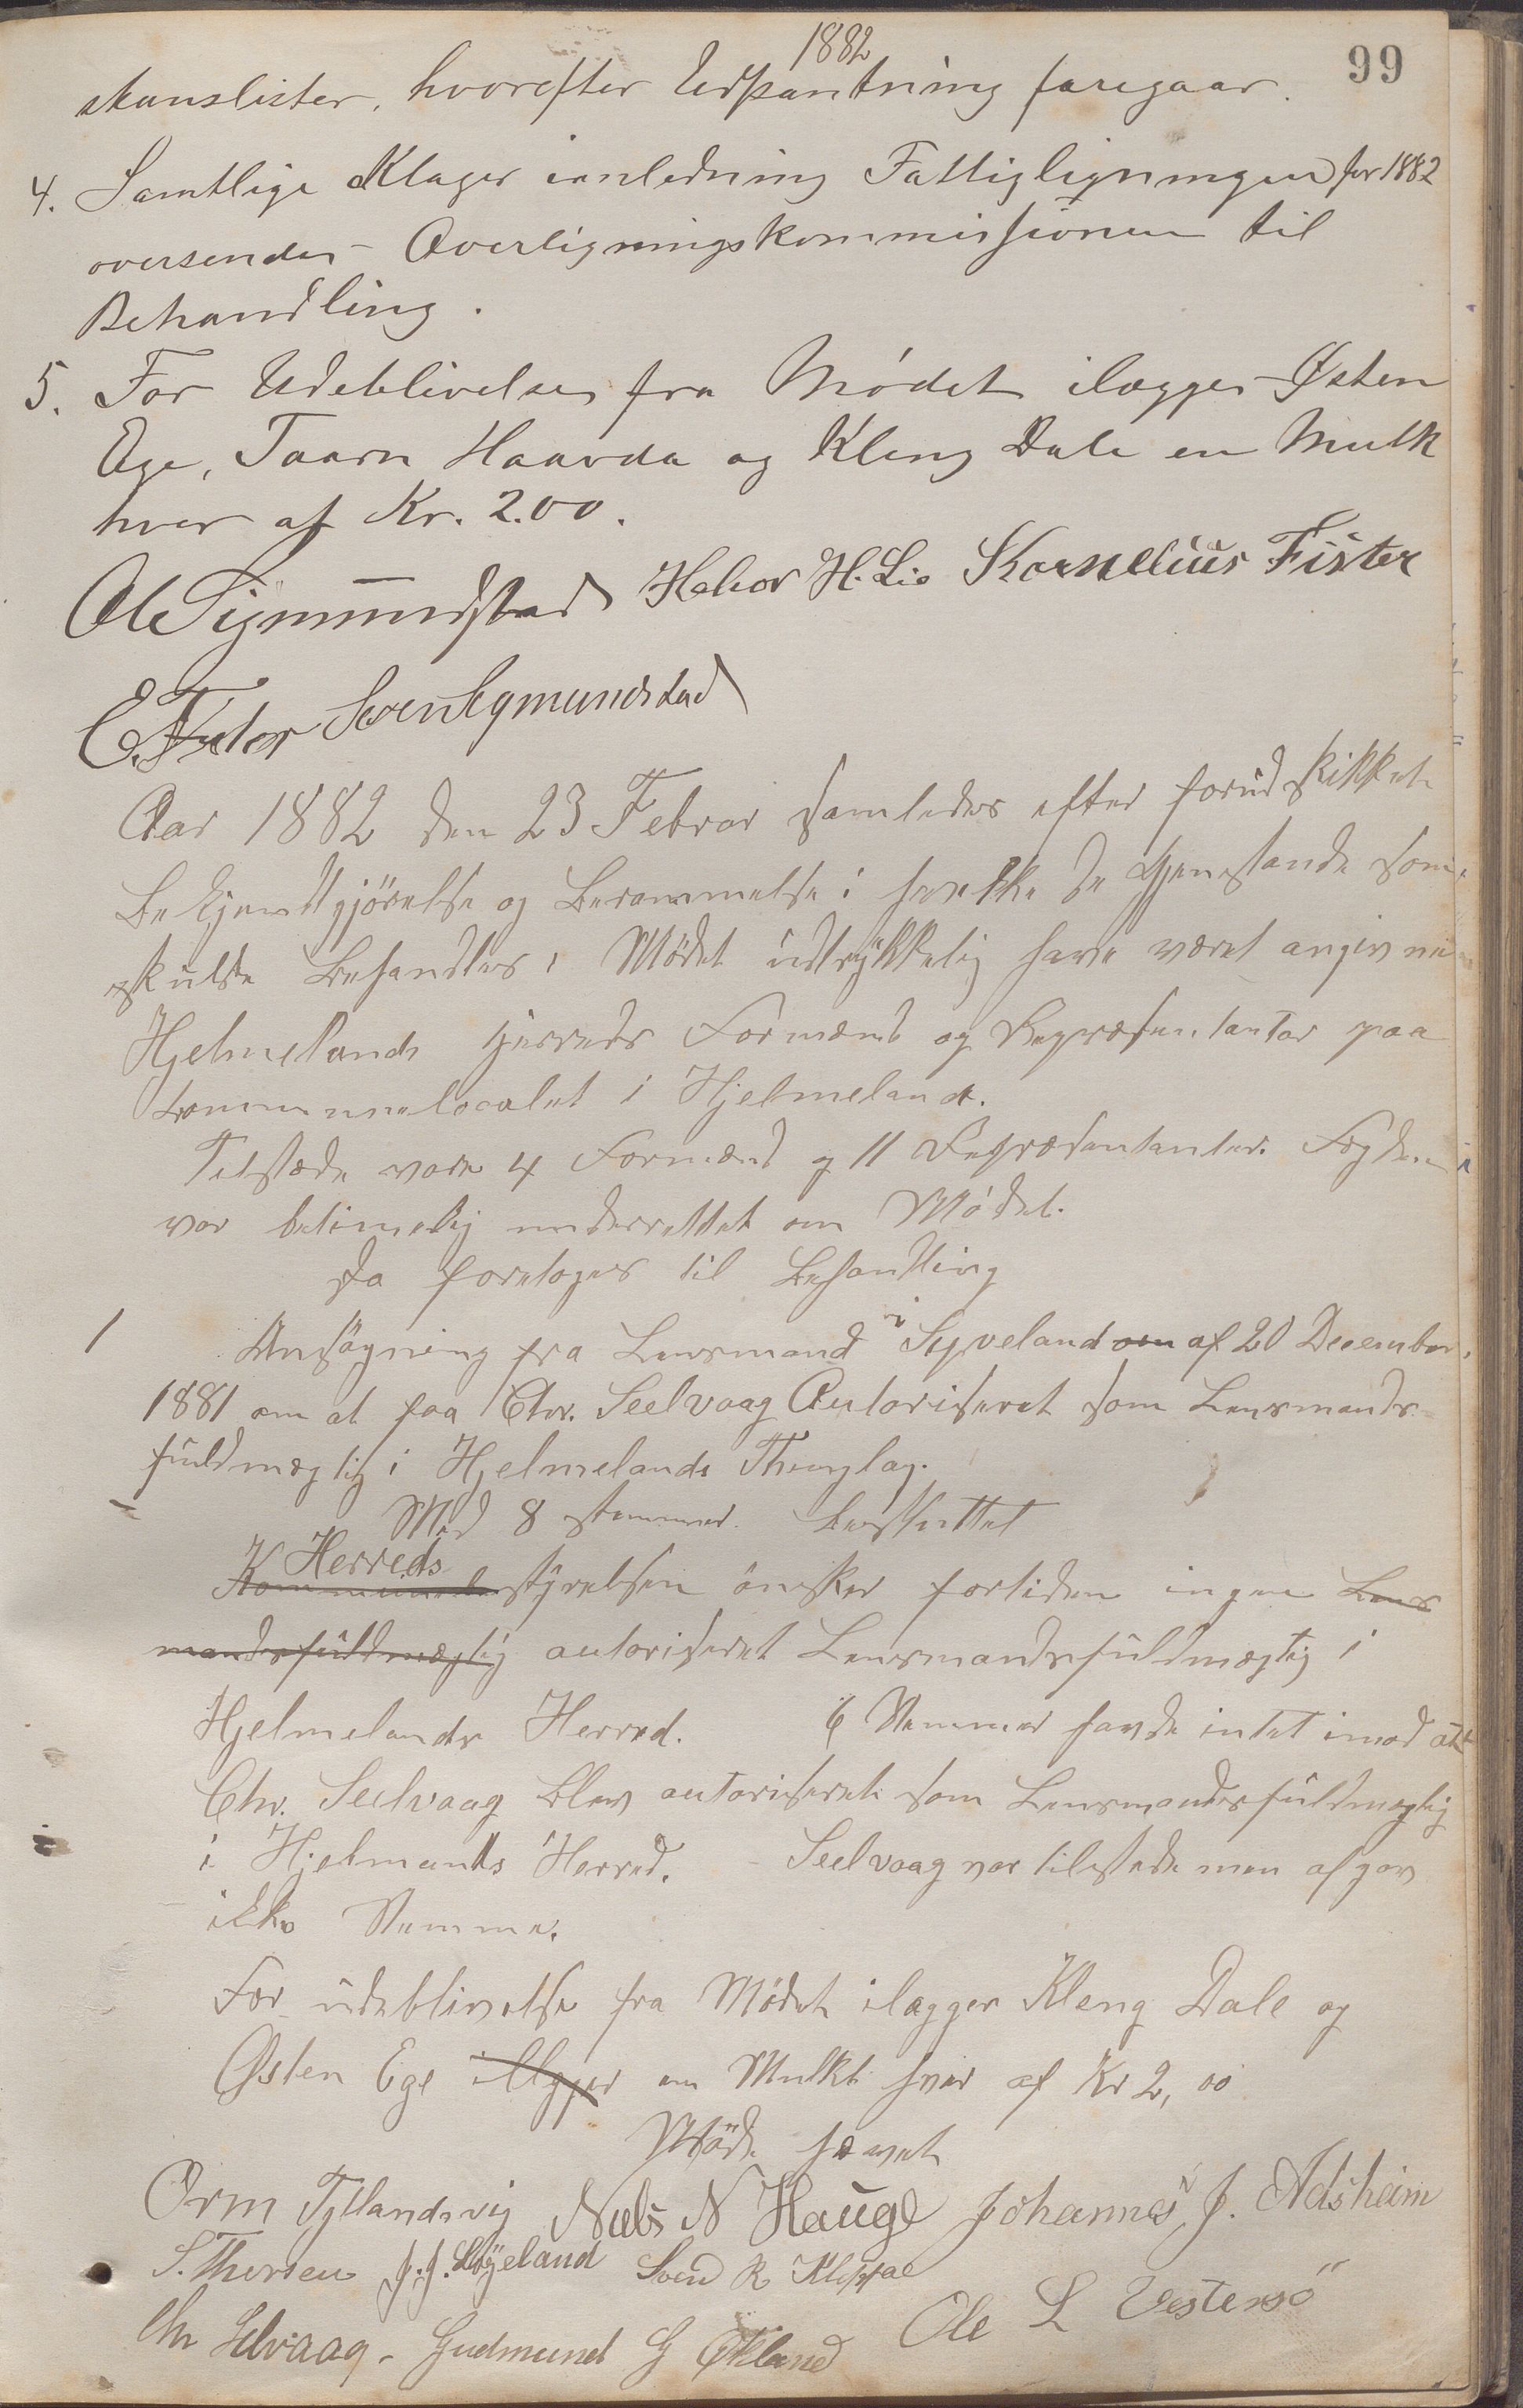 1882
99
skanslister, hvorefter Udpantning foregaar.
4. Samtlige Klager ianledning Fattigligningen for 1882
oversendes Overligningskommissionen til
Behandling.
5. For Udeblivelse fra Mødet ilægges Østen
Ege, Taarn Haavda og Kleng Dale en Mulk
hver af Kr. 2.00.
Ole Sigmundstad Halvor H. Lie Kornelius Fister
E. Sven Sigmundstad
Aar 1882 den 23 Febrar samledes efter forudskikket
Bekjendtgjörelse og Berammelse i hvilke de Gjenstande som
skulde Behandles i Mødet udtrykkelig have været angivne
Hjelmelands Herreds Formænd og Repræsentanter paa
Kommunelocalet i Hjelmeland.
Tilstæde vare 4 Formænd og 11 Repræsentanter. Fogden
var betimelig underrettet om Mödet.
Da foretoges til Behandling
1 Ansögning fra Lensmand i Syveland om af 20 December
1881 om at faa Chr. Seelvaag Autoriseret som Lensmands
fuldmægtig i Hjelmelands Thinglag.
Med 8 stemmer Besluttet
Herreds
Kommunebestyrelsen önsker fortiden ingen Lens
mandsfuldmægtig autoriseret Lensmandsfuldmægtig i
Hjelmelands Herred. 6 Stemmer havde intet imod at
Chr. Seelvaag blev autoriseret som Lensmandsfuldmægtig
i Hjelmands Herred. Seelvaag var tilstede men afgav
ikke Stemme.
For udeblivelse fra Mödet ilægges Kleng Dale og
Østen Ege illgges en Mulkt hver af Kr 2,00
Möde hævet
Orm Tytlandsvig Niels N Hauge Johannes J. Adsheim
S. Thorsen J. J. Höyeland Svend R Kleppe
Chr Selvaag. Gudmund G Økland Ole L Vestersö